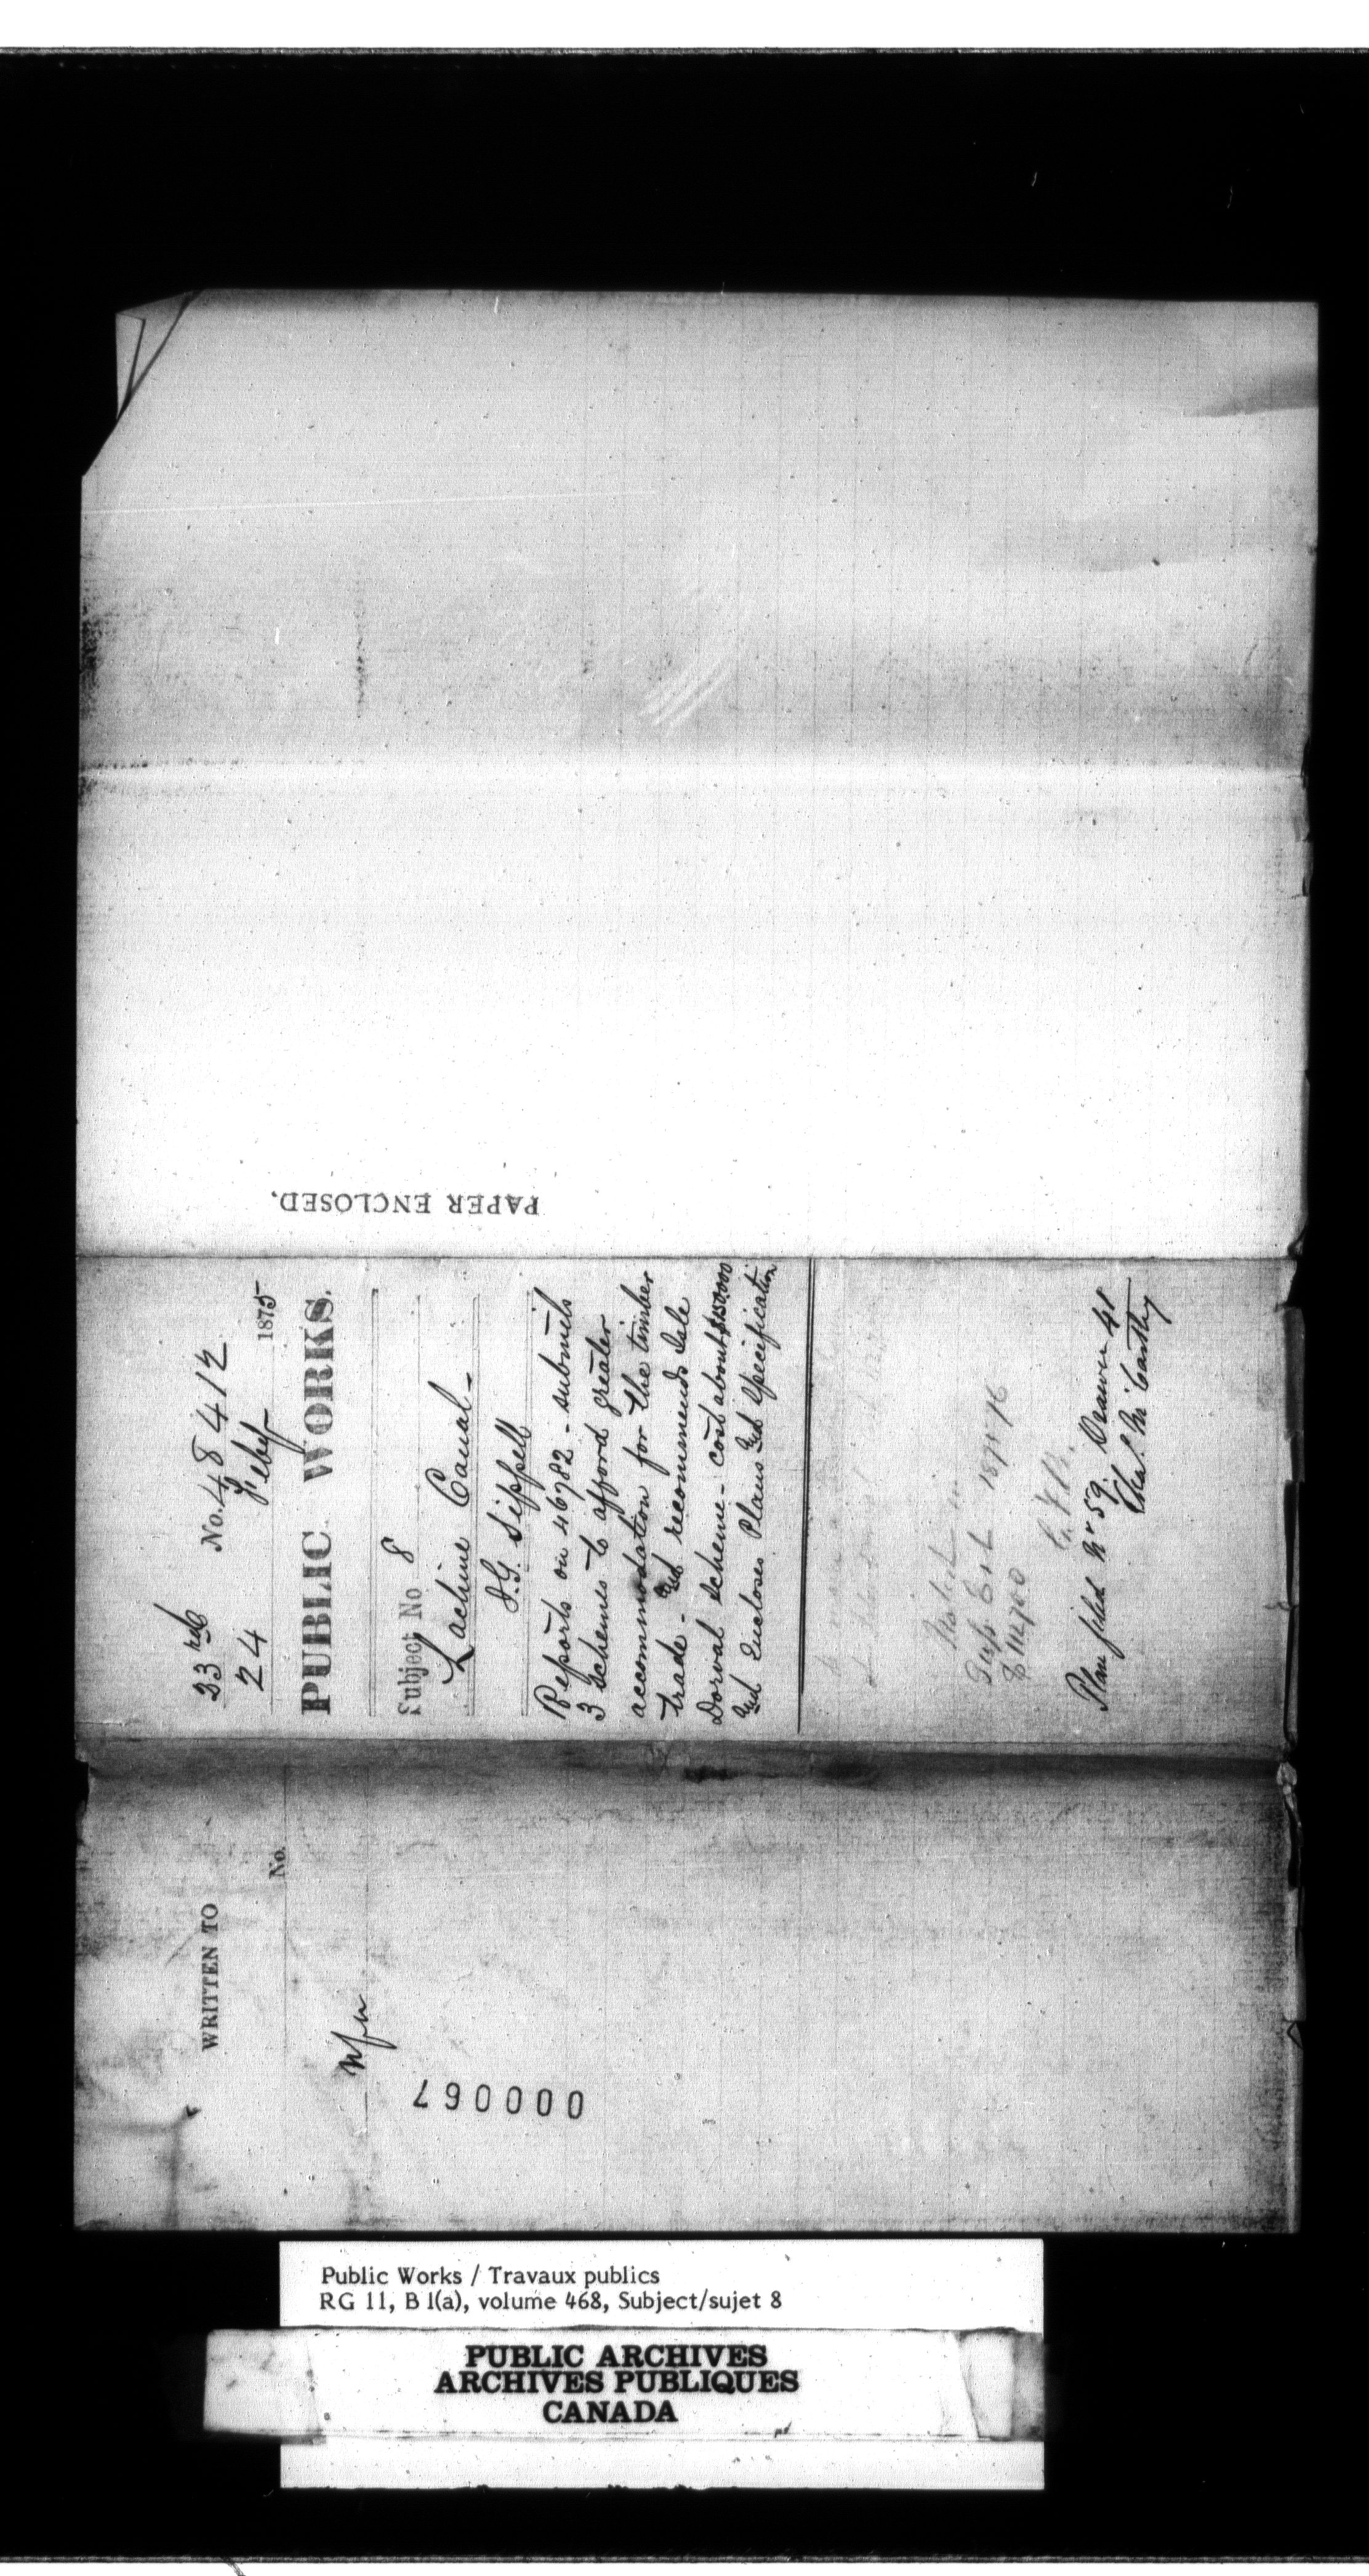 PAPER ENCLOSED.
23rd No. 48412
24 Feby 1875
PUBLIC WORKS.
Subject No 8
Lachine Canal -
J.G. Sippell
Reports on 46982 - submits
3 schemes to afford greater
accommodation for the timber
trade - and recommends Isle
Dorval scheme - cost about $150.000
and Encloses Plans and Specification
1875-76
Plan filed No 59. Drawer 41
Chas. McCarthy
WRITTEN TO
No.
000067
Public Works / Travaux publics
RG 11, B 1(a), volume 468, Subject/sujet 8
PUBLIC ARCHIVES
ARCHIVES PUBLIQUES
CANADA